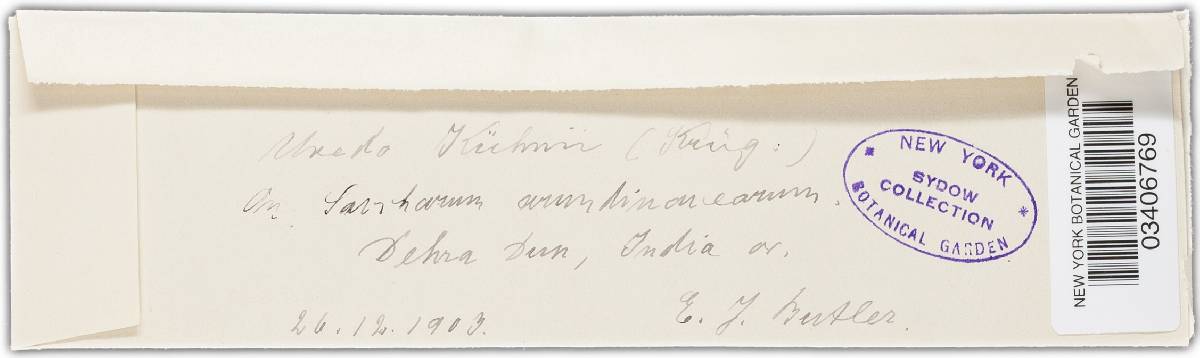 Uredo Kühnii (Krüg.)
On Saccharum arundinacearum.
Dehra Dun, India or.
26.12.1903.
E. J. Butler.
NEW YORK
SYDOW
COLLECTION
BOTANICAL GARDEN
NEW YORK BOTANICAL GARDEN
03406769